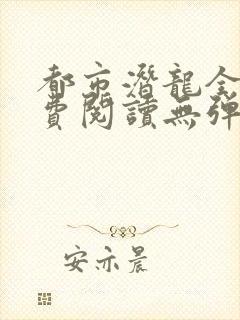 都市潛龍全
費閱讀無彈
安亦晨